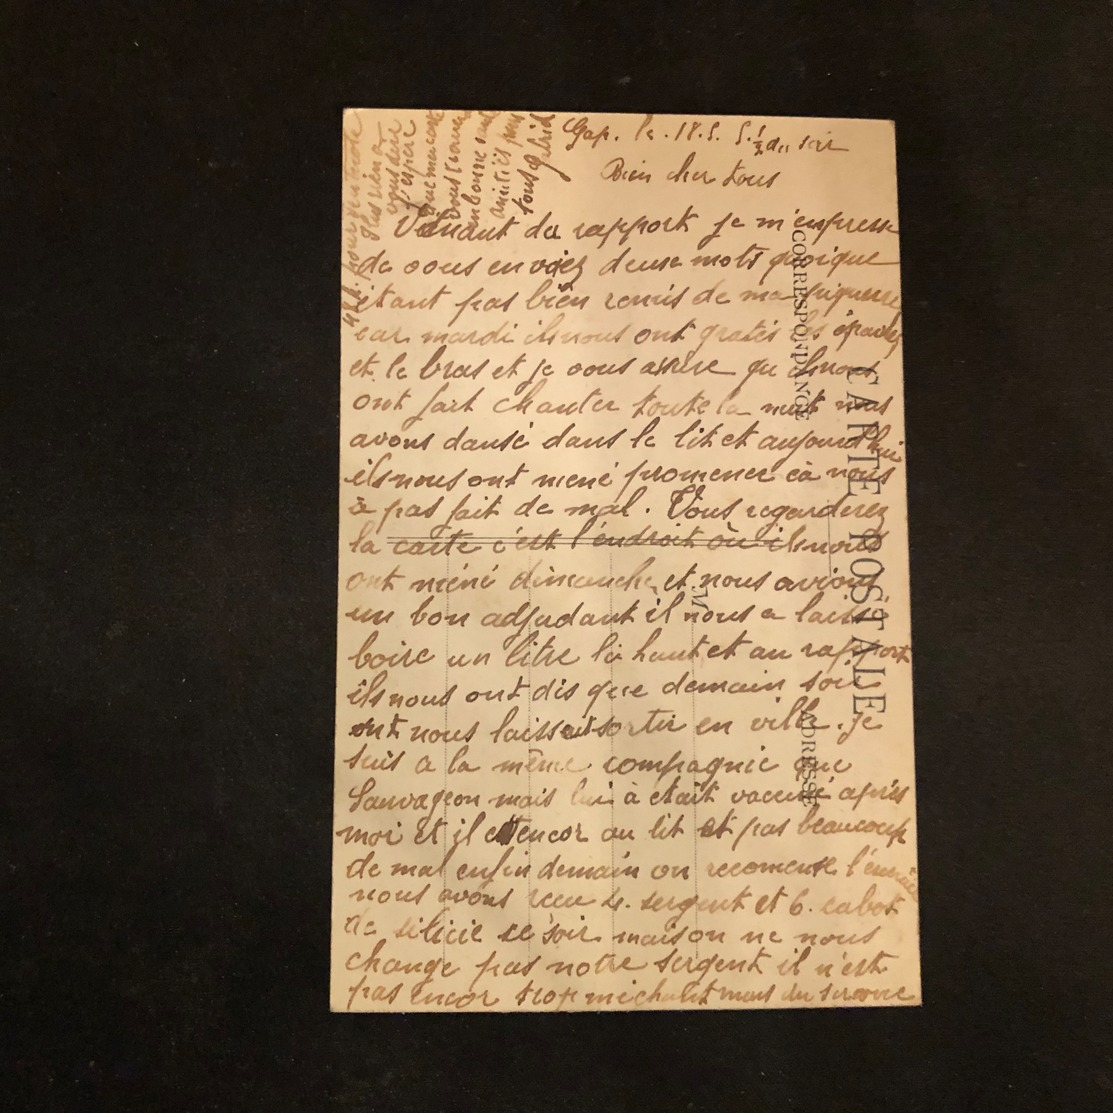 Gap. le. 18.5. 5. 1/2 du soir
Bien cher tous
Venant du rapport je m'empresse
de vous envoiez deuse mots quoique
étant pas bien remis de ma piquerre
car mardi ils nous ont gratés les épaules
et le bras et je vous assure qu'ils nous
ont fait chanter toute la nuit nous
avons dansé dans le lit et aujourd'hui
ils nous ont mené promener cà nous
à pas fait de mal. Vous regarderez
la carte c'est l'endroit où ils nous
ont méné dimanche et nous avions
un bon adjudant il nous a laissé
boire un litre là haut et au rapport
ils nous ont dis que demain soir
ont nous laisse sortir en ville. Je
suis a la même compagnie que
Sauvageon mais lui à était vacciné après
moi et il est encor au lit et pas beaucoup
de mal enfin demain on recomense
nous avons recu 4. sergent et 6. cabot
de ce soir maison ne nous
change pas notre sergent il n'est
pas encor trop méchant mais du
plus rien a
vous dire
J'espère
que ma carte
vous trouve
en bonne santé
amitiés pour
tous Gabriel
CARTE POSTALE
CORRESPONDANCE
ADRESSE
M